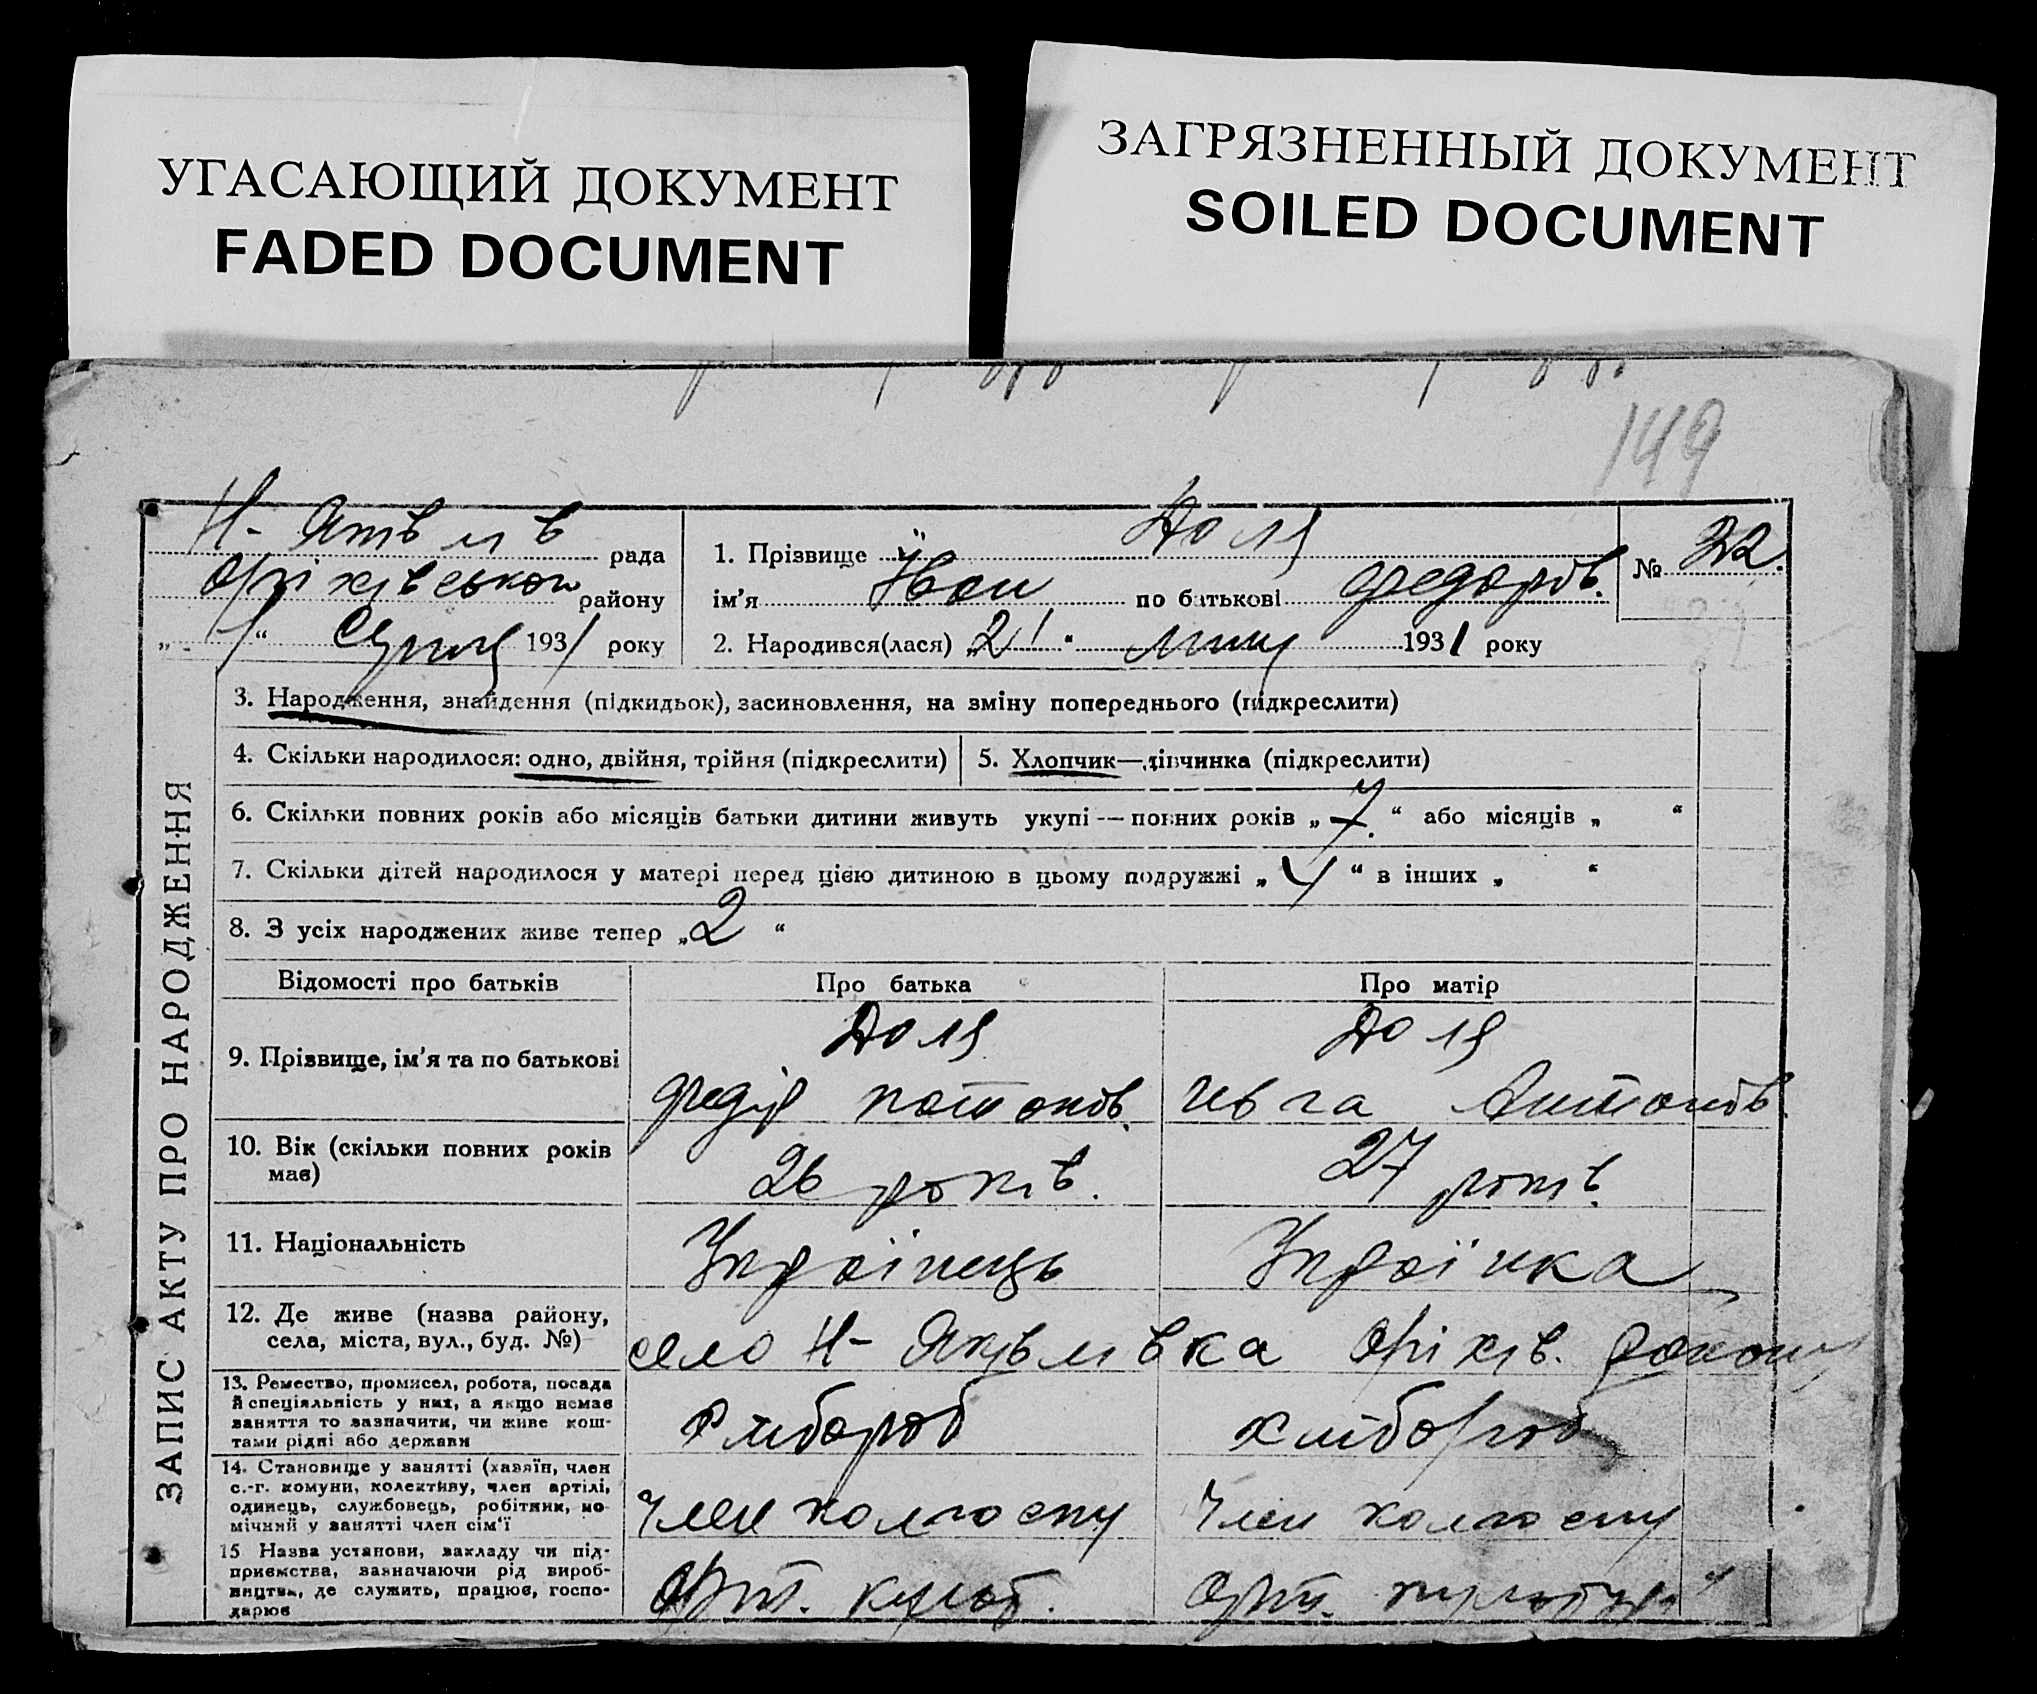 УГАСАЮЩИЙ ДОКУМЕНТ
FADED DOCUMENT
ЗАГРЯЗНЕННЫЙ ДОКУМЕНТ
SOILED DOCUMENT
149
ЗАПИС АКТУ ПРО НАРОДЖЕННЯ
Н- рада
Оріхівського району
„ 1 “ 1931 року
1. Прізвище Доля
ім'я Іван по батькові Федоров.
2. Народився(лася) „21“ 1931 року
№ 32.
3. Народження, знайдення (підкидьок), засиновлення, на зміну попереднього (підкреслити)
4. Скільки народилося: одно, двійня, трійня (підкреслити)
5. Хлопчик—дівчинка (підкреслити)
6. Скільки повних років або місяців батьки дитини живуть укупі — повних років „7.“ або місяців „ “
7. Скільки дітей народилося у матері перед цією дитиною в цьому подружжі „ “ в інших „ “
8. З усіх народжених живе тепер „2 “
Відомості про батьків
Про батька
Про матір
9. Прізвище, ім'я та по батькові
Доля
Федір
Доля
Антонов.
10. Вік (скільки повних років має)
26 років.
27 років.
11. Національність
Українець
Українка
12. Де живе (назва району, села, міста, вул., буд. №)
село Н- Яківлівка Оріхів. району
13. Ремество, промисел, робота, посада й спеціяльність у них, а якщо немає заняття то зазначити, чи живе коштами рідні або держави
Хлібороб
Хлібороб
14. Становище у занятті (хазяїн, член с.-г. комуни, колективу, член артілі, одинець, службовець, робітник, помічний у занятті член сім'ї
Член колгоспу
Член колгоспу
15 Назва установи, закладу чи підприємства, зазначаючи рід виробництва, де служить, працює, господарює